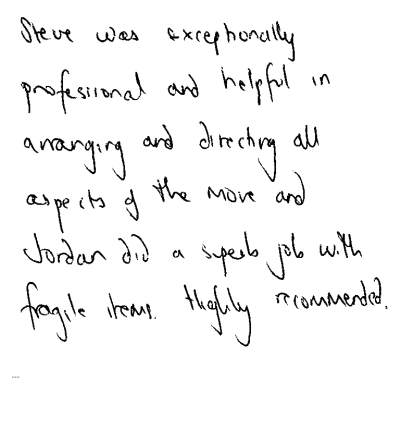 Steve was exceptionally
professional and helpful in
arranging and directing all
aspects of the move and
Jordan did a superb job with
fragile items. Highly recommended.